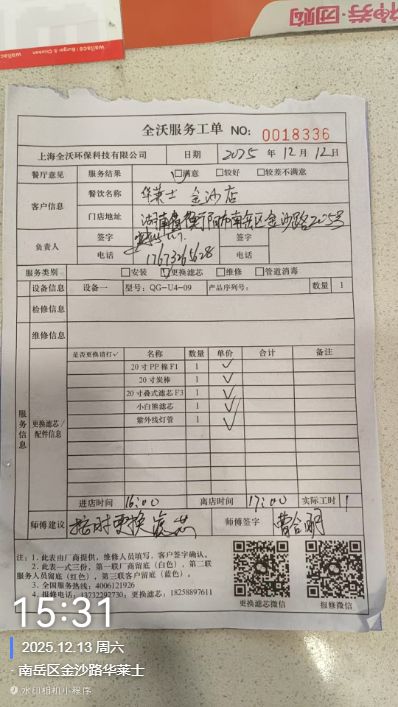 神券·团购
Wallace | Burger & Chicken
全沃服务工单 NO: 0018336
上海全沃环保科技有限公司 日期 2025 年 12 月 12 日
餐厅意见 服务结果 满意 较好 较差不满意
客户信息 餐饮名称 华莱士 金沙店
门店地址 湖南省衡阳市南岳区金沙路2025号
负责人 签字 签字
电话 17673265628 电话
服务类别 安装 更换滤芯 维修 管道消毒
设备信息 设备一 型号: QG-U4-09 产品序列号: 数量 1
检修信息
维修信息
服务信息 更换滤芯/配件信息
是否更换请打✓ 名称 数量 单价 合计 备注
20寸PP棉F1 1 ✓
20寸炭棒 1 ✓
20寸叠式滤芯F3 1 ✓
小白熊滤芯 1 ✓
紫外线灯管 1 ✓
进店时间 16:00 离店时间 17:00 实际工时 1
师傅建议 按时更换滤芯 师傅签字
注: 1. 此表由厂商提供, 维修人员填写, 客户签字确认。
2. 此表一式三份, 第一联厂商留底 (白色), 第二联
服务人员留底 (红色), 第三联客户留底 (蓝色)。
3. 全国服务热线: 4006121926
4. 报修电话: 13732292730; 更换滤芯: 18258897611
更换滤芯微信 报修微信
15:31
2025.12.13 周六
南岳区金沙路华莱士
水印相机小程序